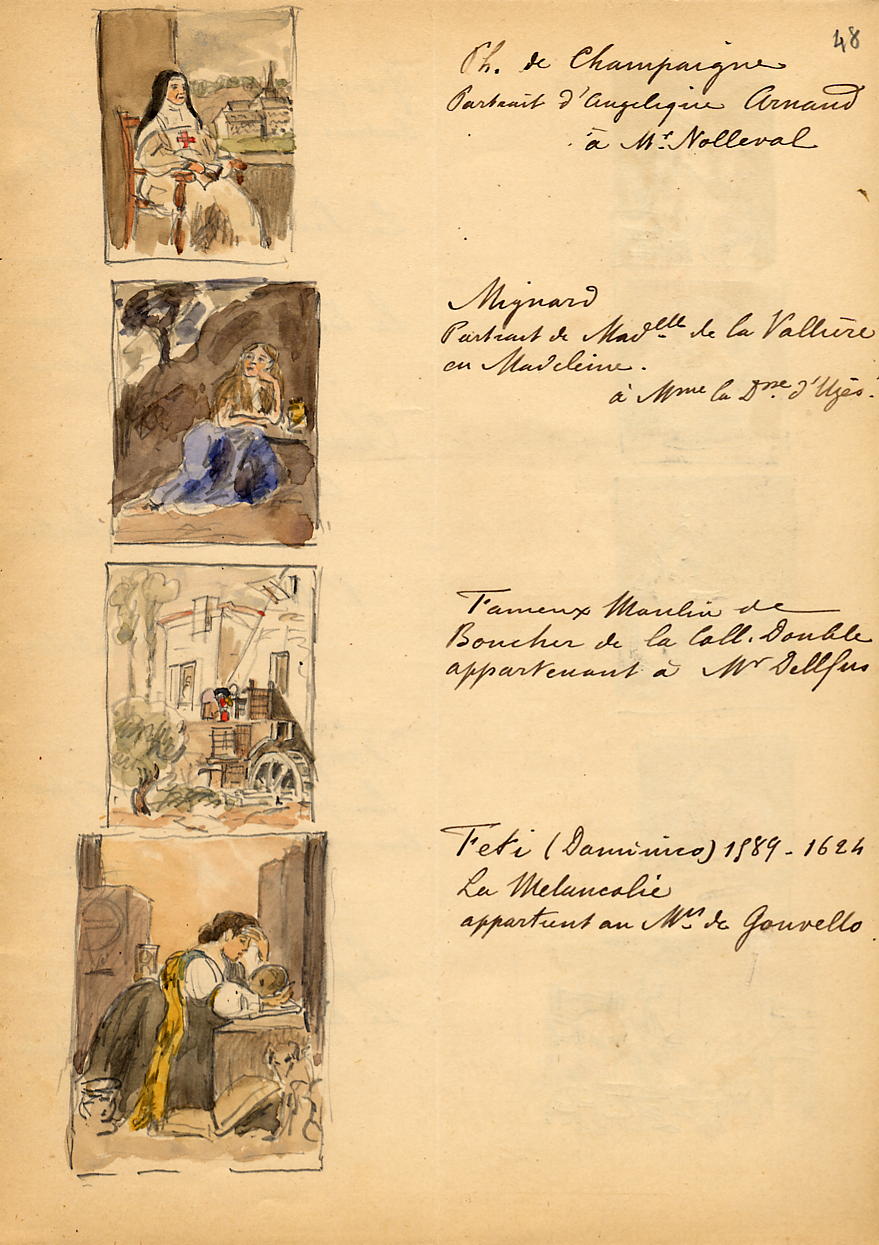 48
Ph. de Champaigne
Portrait d'Angelique Arnaud
à Mr. Nolleval
Mignard
Portrait de Madelle de la Vallière
en Madeleine.
à Mme la Dsse. d'Uzès.
Fameux Moulin de
Boucher de la Coll. Double
appartenant à Mr Dollfus
Feti (Dominico) 1589 - 1624
La Melancolie
appartient au Mis de Gouvello